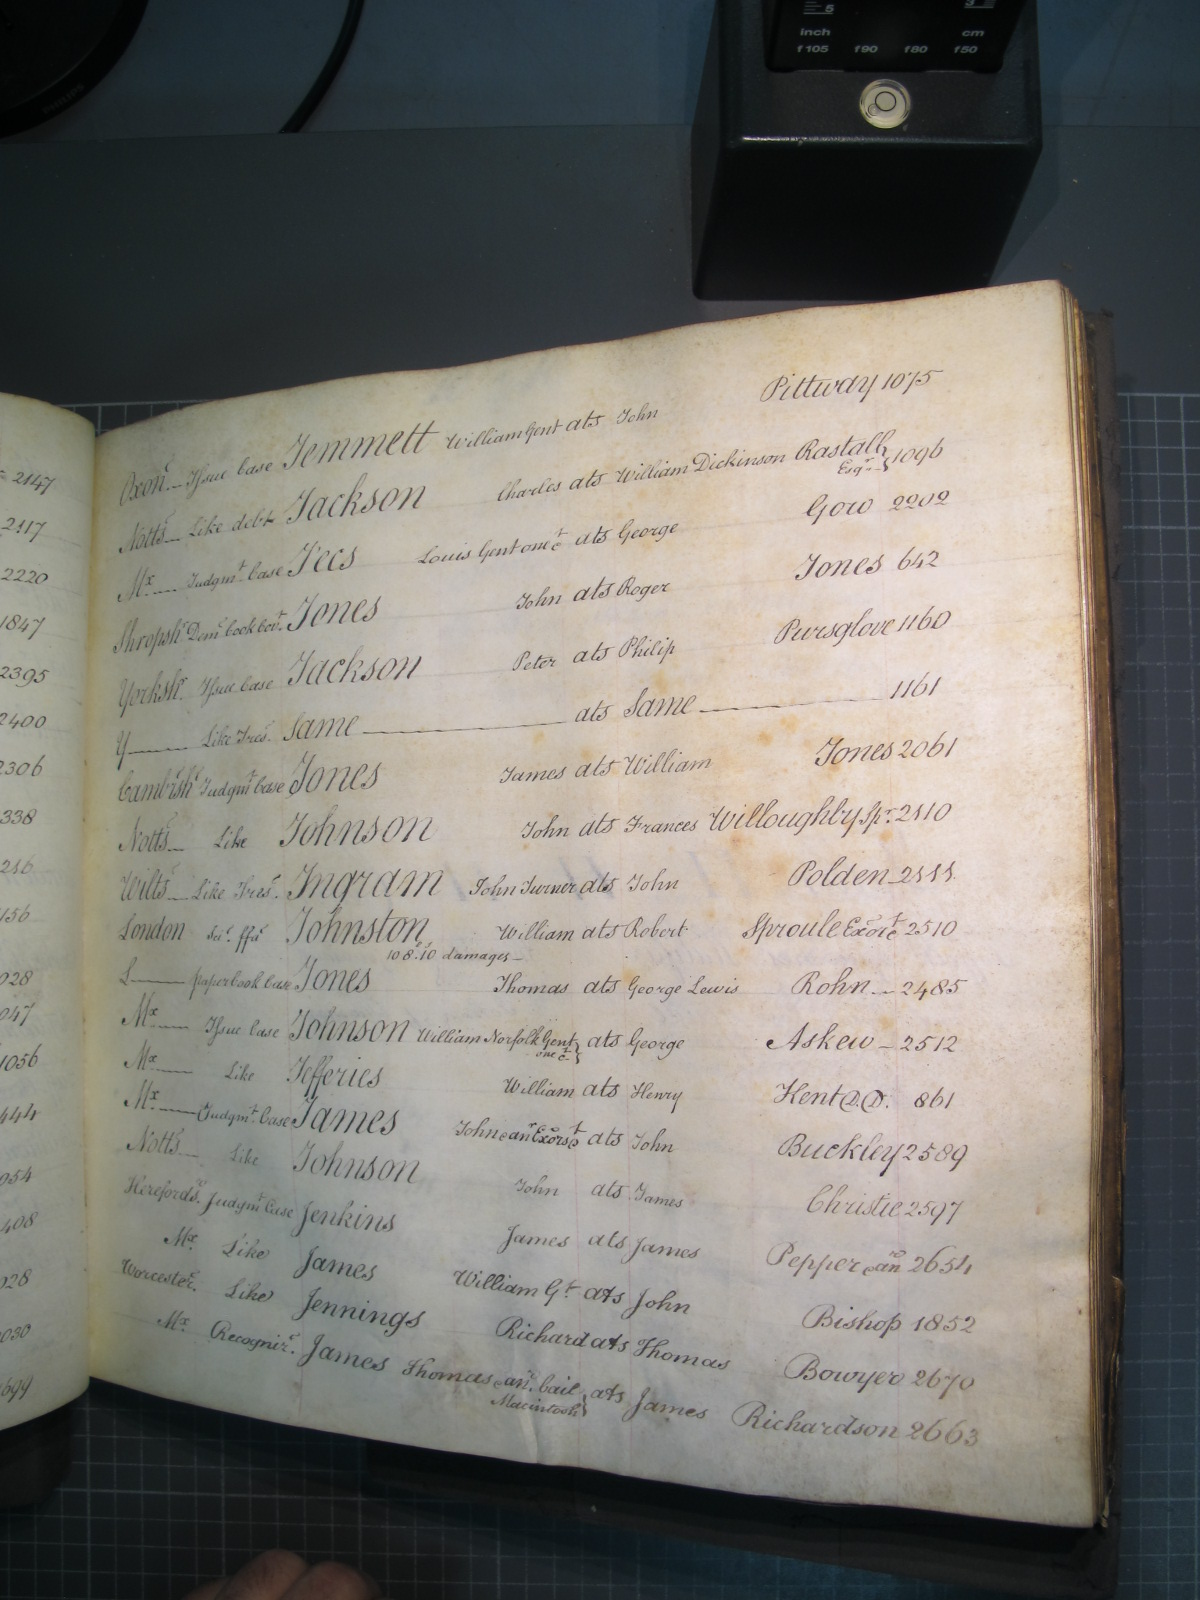 5
inch cm
f105 f90 f80 f50
PHILIPS
2147
2117
2220
1847
2395
2400
2306
338
216
156
028
047
1056
444
054
408
028
030
1699
Oxon. Issue Case Jemmett William Gent ats John Pittway 1075
Notts Like debt Jackson Charles ats William Dickinson Rastall Esqr. 1096
Mx Judgmt Case Jees Louis Gent one &c ats George Gow 2202
Shropsh Demr book Covt. Jones John ats Roger Jones 642
Yorksh. Issue Case Jackson Peter ats Philip Pursglove 1160
Y Like Tres. Same ats Same 1161
Cambrsh Judgmt Case Jones James ats William Jones 2061
Notts Like Johnson John ats Frances Willoughby Spr. 2110
Wilts Like Tres. Ingram John Turner ats John Polden
London Sci. ffa Johnston William ats Robert Sproule Exor &c 2510
108.10 damages
L paperbook Case Jones Thomas ats George Lewis Rohn 2485
Mx Issue Case Johnson William Norfolk Gent one &c ats George Askew 2512
Mx Like Jefferies William ats Henry Kent D.D. 861
Mx Judgmt Case James John &anr Exors &c ats John Buckley 2589
Notts Like Johnson John ats James Christie 2597
Herefords. Judgmt Case Jenkins James ats James Pepper &an 2654
Mx Like James William Gt. ats John Bishop 1852
Worcester. Like Jennings Richard ats Thomas Bowyer 2670
Mx Recognizr. James Thomas &anr. bail Macintosh ats James Richardson 2663